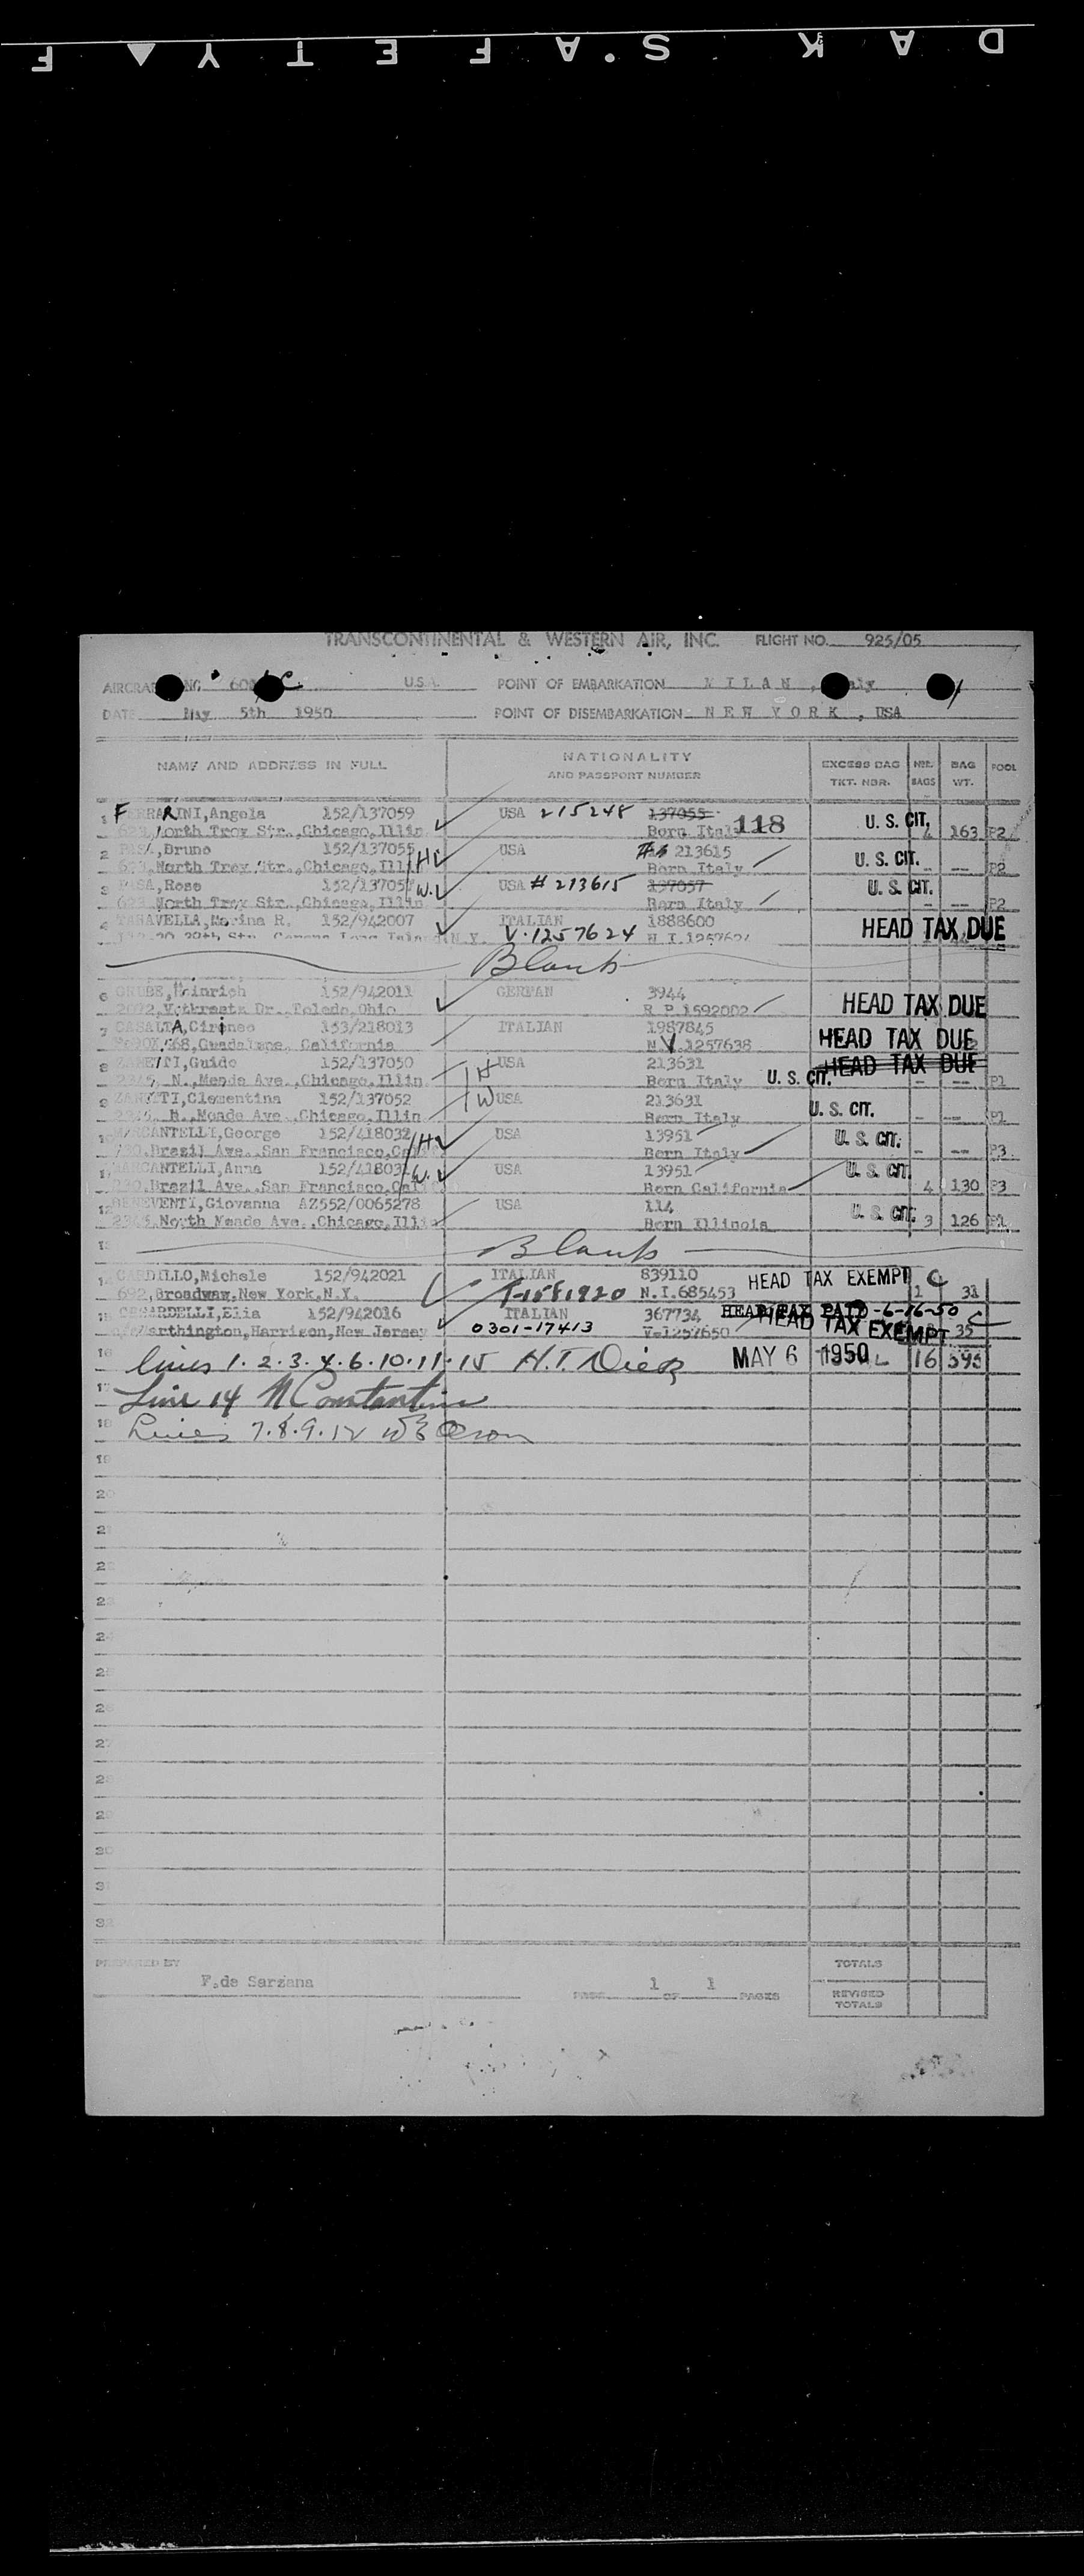 TRANSCONTINENTAL & WESTERN AIR, INC. FLIGHT NO. 925/05
AIRCRAFT NC C U.S.A. POINT OF EMBARKATION MILAN, Italy
DATE May 5th 1950 POINT OF DISEMBARKATION NEW YORK, USA
NAME AND ADDRESS IN FULL NATIONALITY AND PASSPORT NUMBER EXCESS BAG TKT. NBR. NBR. BAGS BAG WT. POOL
1 FERRARINI,Angela 152/137059 USA 215248 137055 118 U. S. CIT.
623,North Troy Str.,Chicago,Illin Born Italy 4 163 P2
2 PASA,Bruno 152/137055 H USA 213615 U. S. CIT.
623,North Troy Str.,Chicago,Illin Born Italy - -- P2
3 PASA,Rose 152/137057 W. USA # 213615 137057 U. S. CIT.
623 North Troy Str.,Chicago,Illin Born Italy - -- P2
4 TASAVELLA,Marina R. 152/942007 ITALIAN 1888600 HEAD TAX DUE
Long Island,N.Y. V.1257624 N.I.1257624
Blank
6 GRUBE,Heinrich 152/942011 GERMAN 3944 HEAD TAX DUE
Dr.,Toledo,Ohio R.P.1592002
7 CASALTA,Cirineo 153/218013 ITALIAN 1987845 HEAD TAX DUE
P.BOX,568,Guadalupe, California V.1257638
8 ZANETTI,Guido 152/137050 H USA 213631 HEAD TAX DUE
N.,Meade Ave.,Chicago,Illin Born Italy U. S. CIT. - -- P1
9 ZANETTI,Clementina 152/137052 W USA 213631 U. S. CIT.
N.,Meade Ave.,Chicago,Illin Born Italy - -- P1
10 MARCANTELLI,George 152/418032 H USA 13951 U. S. CIT.
730,Brazil Ave.,San Francisco,Cal Born Italy - -- P3
11 MARCANTELLI,Anna 152/418031 W. USA 13951 U. S. CIT
730,Brazil Ave.,San Francisco,Cal Born California 4 130 P3
12 BENEVENTI,Giovanna AZ552/0065278 USA 114 U. S. CIT.
2345,North Meade Ave.,Chicago,Illin Born Illinois 3 126 P1
13 Blank
14 CARDILLO,Michele 152/942021 ITALIAN 839110 HEAD TAX EXEMPT C
692,Broadway,New York,N.Y. T-1581920 N.I.685453 1 31
15 ITALIAN 152/942016 367734 HEAD TAX PAID -6-16-50
Worthington,Harrison,New Jersey 0301-17413 V-1257650 HEAD TAX EXEMPT C 35
16 lines 1.2.3.4.6.10.11.15 H.T. MAY 6 1950 16 595
17 Line 14 N Constantine
18 Lines 7.8.9.12
19
20
21
22
23
24
25
26
27
28
29
30
31
32
PREPARED BY F.de Sarzana PAGE 1 OF 1 PAGES
TOTALS
REVISED TOTALS